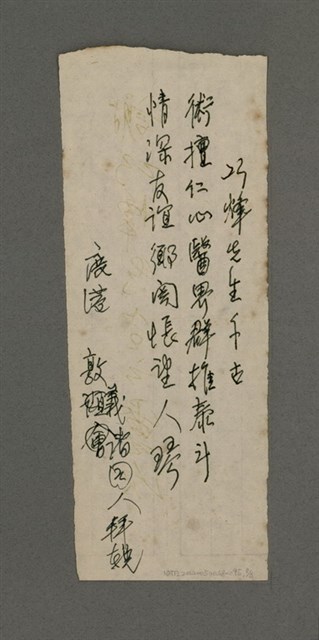 先生千古
術擅仁心醫界群推泰斗
情深友誼鄉関悵望人琴
鹿港 敦義諸仝人拜輓